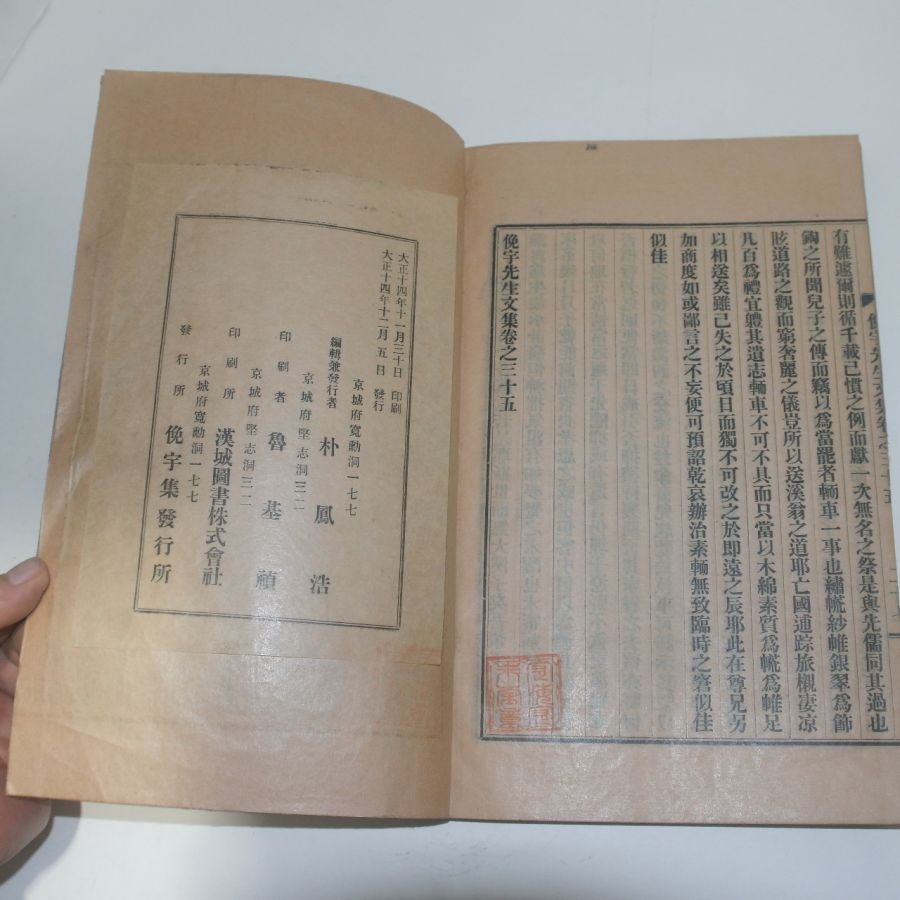 有難遽爾則循千載已慣之例而獻一次無名之祭是與先儒同其過也
鋾之所聞兒子之傳而竊以爲當罷者輀車一事也繡㡆紗帷銀翠爲節
眩道路之觀而窮奢麗之儀豈所以送溪翁之道耶亡國逋踪旅櫬凄凉
凡百爲禮宜軆其遺志輀車不可不具而只當以木綿素質爲㡆爲帷足
以相送矣雖已失之於頃日而獨不可改之於即遠之辰耶此在尊兄另
加商度如或鄙言之不妄便可預詔乾哀辦治素輀無致臨時之窘似佳
似佳
俛宇先生文集卷之三十五
大正十四年十一月三十日 印刷
大正十四年十二月五日 發行
京城府寬勳洞一七七
編輯兼發行者 朴鳳浩
京城府堅志洞三二
印刷者 魯基禎
京城府堅志洞三二
印刷所 漢城圖書株式會社
京城府寬勳洞一七七
發行所 俛宇集發行所